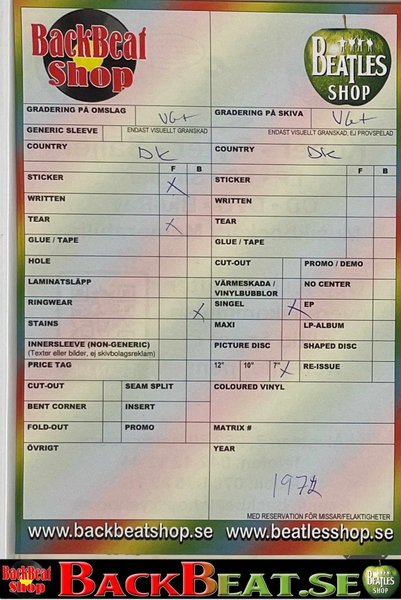 BackBeat Shop
BEATLES SHOP
GRADERING PÅ OMSLAG VG+
GRADERING PÅ SKIVA VG+
GENERIC SLEEVE
ENDAST VISUELLT GRANSKAD
ENDAST VISUELLT GRANSKAD, EJ PROVSPELAD
COUNTRY DK
COUNTRY DK
F B
F B
STICKER X
STICKER
WRITTEN
WRITTEN
TEAR X
TEAR
GLUE / TAPE
GLUE / TAPE
HOLE
CUT-OUT
PROMO / DEMO
LAMINATSLÄPP
VÄRMESKADA / VINYLBUBBLOR
NO CENTER
RINGWEAR X
SINGEL X
EP
STAINS
MAXI
LP-ALBUM
INNERSLEEVE (NON-GENERIC)
(Texter eller bilder, ej skivbolagsreklam)
PICTURE DISC
SHAPED DISC
PRICE TAG
12" 10" 7" X
RE-ISSUE
CUT-OUT
SEAM SPLIT
COLOURED VINYL
BENT CORNER
INSERT
FOLD-OUT
PROMO
MATRIX #
ÖVRIGT
YEAR
MED RESERVATION FÖR MISSAR/FELAKTIGHETER
www.backbeatshop.se www.beatlesshop.se
BackBeat Shop
BACKBEAT.SE
BEATLES SHOP